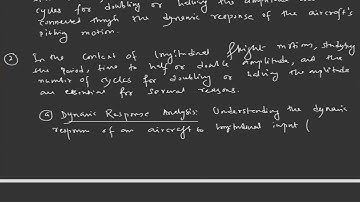 cycles for doubling or halving the amplitude are
connected through the dynamic response of the aircraft's
pitching motion.
② In the context of longitudinal flight motions, studying
the period, time to half or double amplitude, and the
number of cycles for doubling or halving the amplitude
are essential for several reasons.
ⓐ Dynamic Response Analysis: Understanding the dynamic
response of an aircraft to longitudinal input (